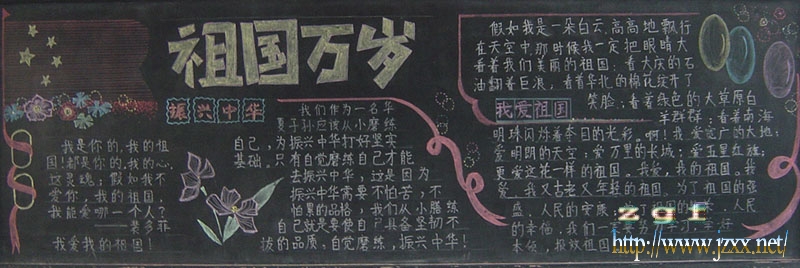 祖国万岁
振兴中华
我是你的,我的祖
国!都是你的,我的心,
这灵魂;假如我不
爱你,我的祖国,
我能爱哪一个人?
——裴多菲
我爱我的祖国!
我们作为一名华
夏子孙应该从小磨练
自己,为振兴中华打好坚实
基础,只有自觉磨练自己才能
去振兴中华,这是因为
振兴中华需要不怕苦,不
怕累的品格,我们从小磨练
自己就是要使自己具备坚韧不
拔的品质,自觉磨练,振兴中华!
假如我是一朵白云,高高地飘行
在天空中,那时候我一定把眼睛大
看着我们美丽的祖国:看大庆的石
油翻着巨浪,看着华北的棉花绽开了
笑脸;看着绿色的大草原白
我爱祖国
羊群群;看着南海
明珠闪烁着夺目的光彩。啊!我爱宽广的大地;
爱明朗的天空;爱万里的长城;爱五星红旗;
更爱这花一样的祖国。我爱,我的祖国。我
爱,我又古老又年轻的祖国。为了祖国的强
盛,人民的安康,
的幸福,我们一定要努力学习,
本领,报效祖国
zgf
http://www.jzxx.net/